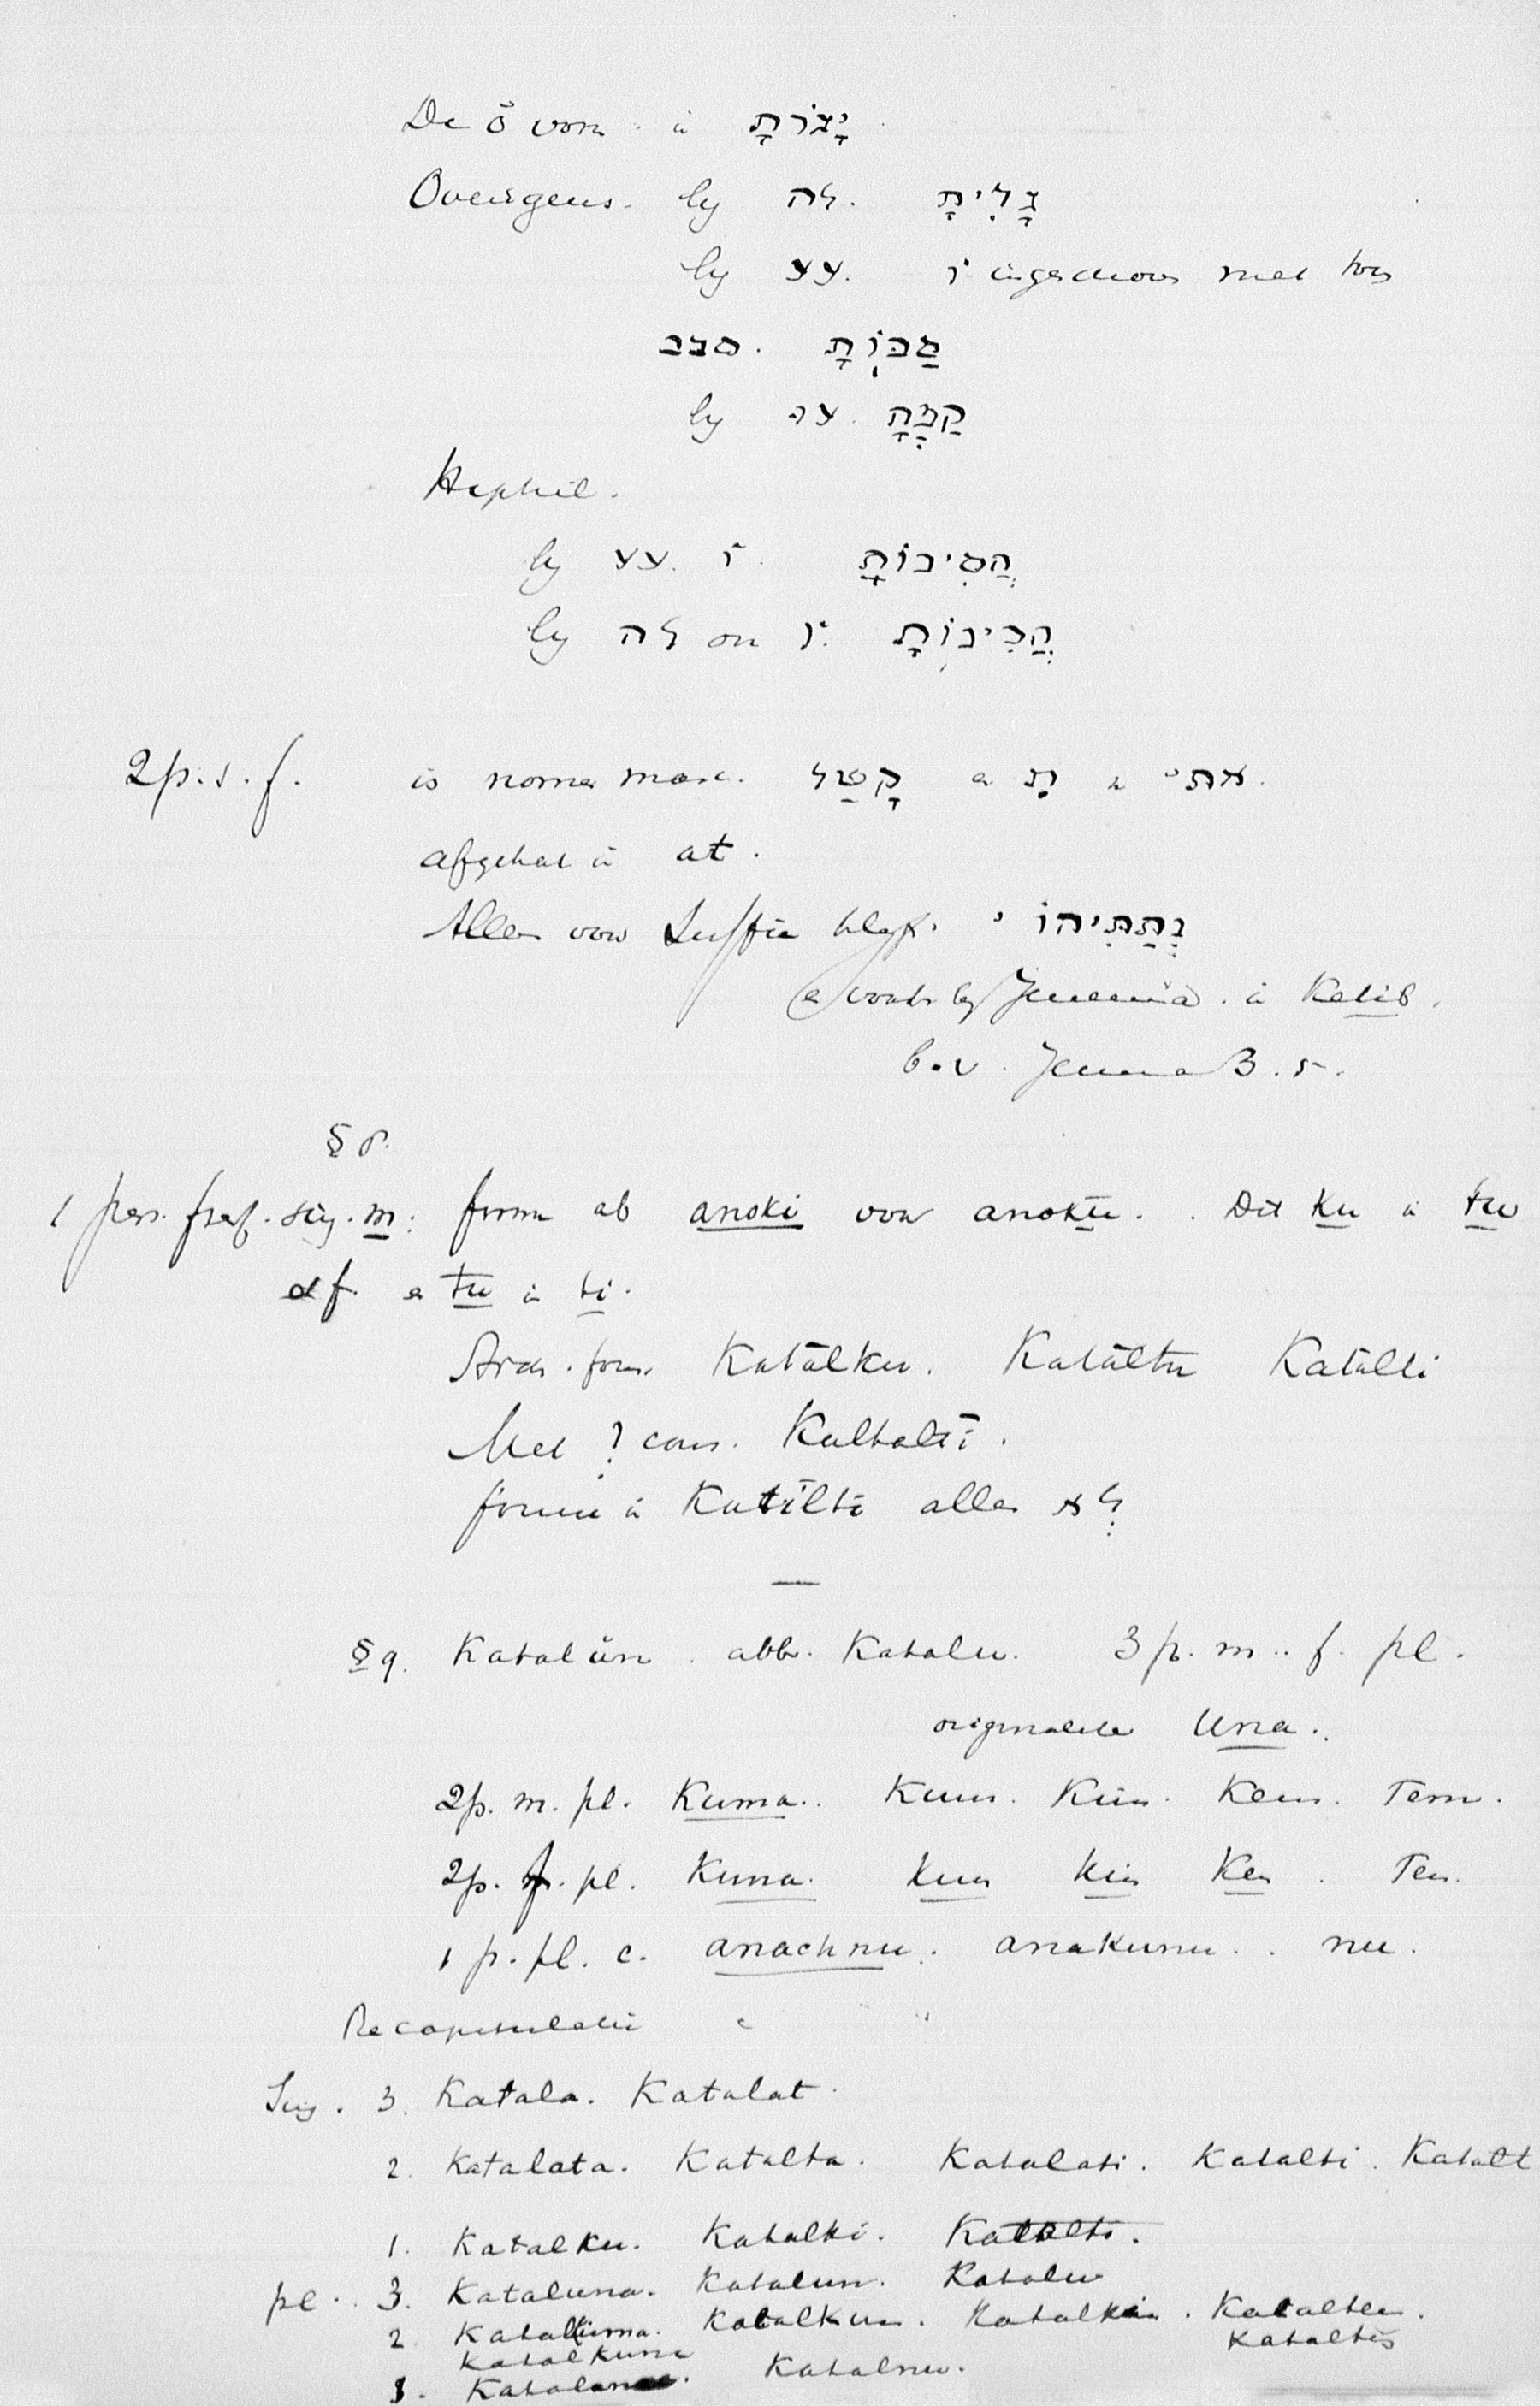 De ō vorm. in יָצוֹרתָ
Overigens. by לה. גָּלִיתָ
by עע. וֹ ingeschoven met ton
סבב. סַבּוֹתָ
by עה קַבָּתָ
Hiphil.
by עע. וֹ. הֲסִיבוֹתָ
by לה en וֹ. הֲכִינוֹתָ
2 p. s. f. is norma masc. קָטַל e תָּ u אתי.
afgekat in at.
Allen voor Suffix blyft י נְתַתִּיהוֹ
e vaak by Jeremia. in Ketib.
b. v. Jeremia 3. 5.
§ 8.
1 pers. praef. sing. m: form ab anoki voor anoku. . Dit ku in tu
df. e tu in ti.
Arch. form. Katālku. Katāltu Katālti
Met ו cons. Kaltaltī.
form in Katilti allen
§ 9. Katalūn. abbr. Katalu. 3 p. m. . f. pl.
originalele una. .
2 p. m. pl. Kuma. . Kum. Kim. Kem. Tem.
2 p. f. pl. Kuna. kun kin Ken. Ten.
1 p. pl. c. anachnu. anakunu. . nu.
Recapitulatie
Sing. 3. Katala. Katalat.
2. Katalata. Katalta. Katalati. Katalti. Katalt
1. Katalku. Katalki. Katalti.
pl. . 3. Kataluna. Katalun. Katalu
2. Katalkuma. Katalkum. Katalkim. Kataltem.
Katalkuna Katalten
1. Katalnu.